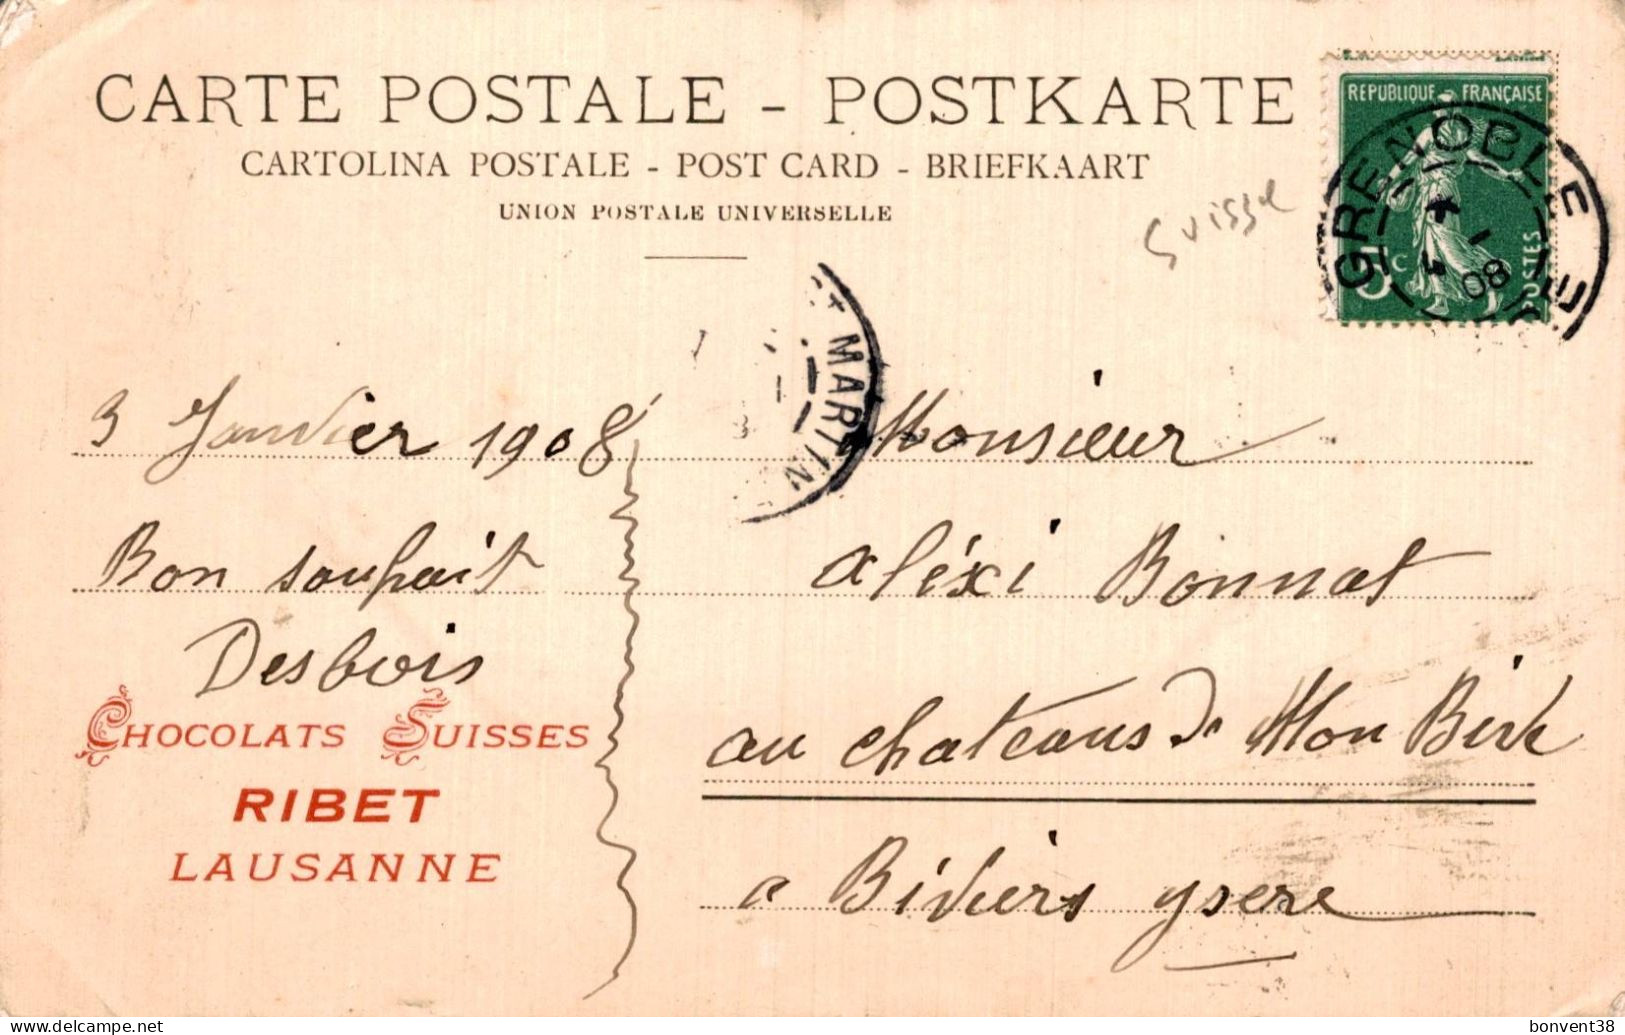 CARTE POSTALE - POSTKARTE
CARTOLINA POSTALE - POST CARD - BRIEFKAART
UNION POSTALE UNIVERSELLE
Suisse
REPUBLIQUE FRANÇAISE
5 c
POSTES
GRENOBLE
1
08
MARTIN
3 Janvier 1908
Bon souhait
Desbois
CHOCOLATS SUISSES
RIBET
LAUSANNE
Monsieur
aléxi Bonnat
au chateaus de Mon
a Biviers ysere
bonvent38